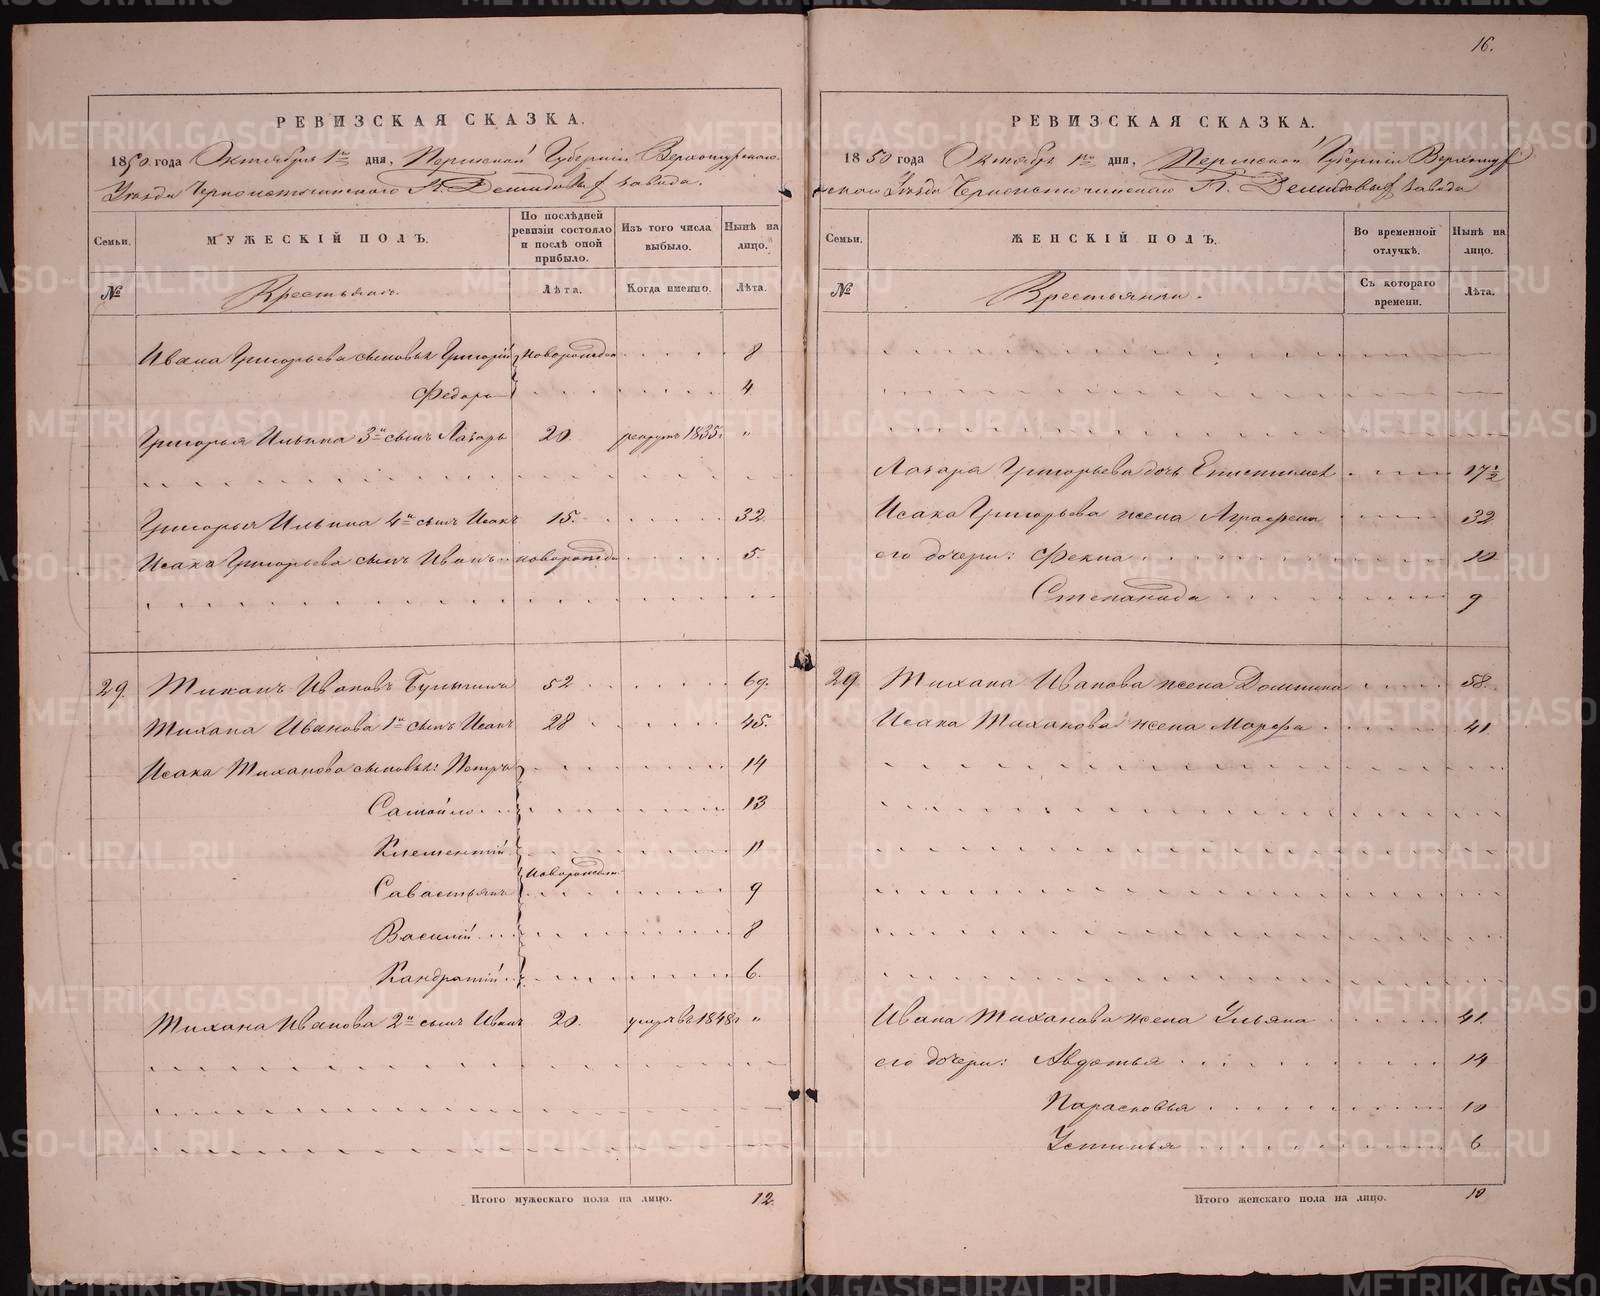 16.
РЕВИЗСКАЯ СКАЗКА.
1850 года Октября 1го дня, Пермской Губерніи Верхотурскаго
Уѣзда Черноисточинскаго Гг. Демидовых завода.
Семьи.
МУЖЕСКІЙ ПОЛЪ.
По послѣдней ревизіи состояло и послѣ оной прибыло.
Изъ того числа выбыло.
Нынѣ на лицо.
№
Крестьянъ.
Лѣта.
Когда именно.
Лѣта.
Ивана Григорьева сыновья Григорій новорожден 8
Федоръ 4
Григорья Ильина 3й сынъ Лазарь 20 рекрутъ 1835г "
Григорья Ильина 4й сынъ Исакъ 15. 32.
Исака Григорьева сынъ Иванъ новорожде 5.
29. Тиханъ Ивановъ 52 69.
Тихана Иванова 1й сынъ Исакъ 28 45.
Исака Тиханова сыновья: Петръ 14
Самойло 13
Клементій 11
Савастьянъ новорожден 9
Василій 8
Кандратій 6.
Тихана Иванова 2й сынъ Иванъ 20. умръ въ 1848г "
Итого мужескаго пола на лицо. 12.
РЕВИЗСКАЯ СКАЗКА.
1850 года Октября 1го дня, Пермской Губерніи Верхотур
скаго Уѣзда Черноисточинскаго Гг. Демидовых завода
Семьи.
ЖЕНСКІЙ ПОЛЪ.
Во временной отлучкѣ.
Нынѣ на лицо.
№
Крестьянки.
Съ котораго времени.
Лѣта.
Лазаря Григорьева дочь Епистимея 17½
Исака Григорьева жена Аграфена 32
его дочери: Фекла 10
Степанида 9
29 Тихана Иванова жена Домника 58.
Исака Тиханова жена Марфа 41
Ивана Тиханова жена Ульяна 41.
его дочери: Авдотья 14
Парасковья 10
Устинья 6
Итого женскаго пола на лицо. 10
METRIKI.GASO-URAL.RU